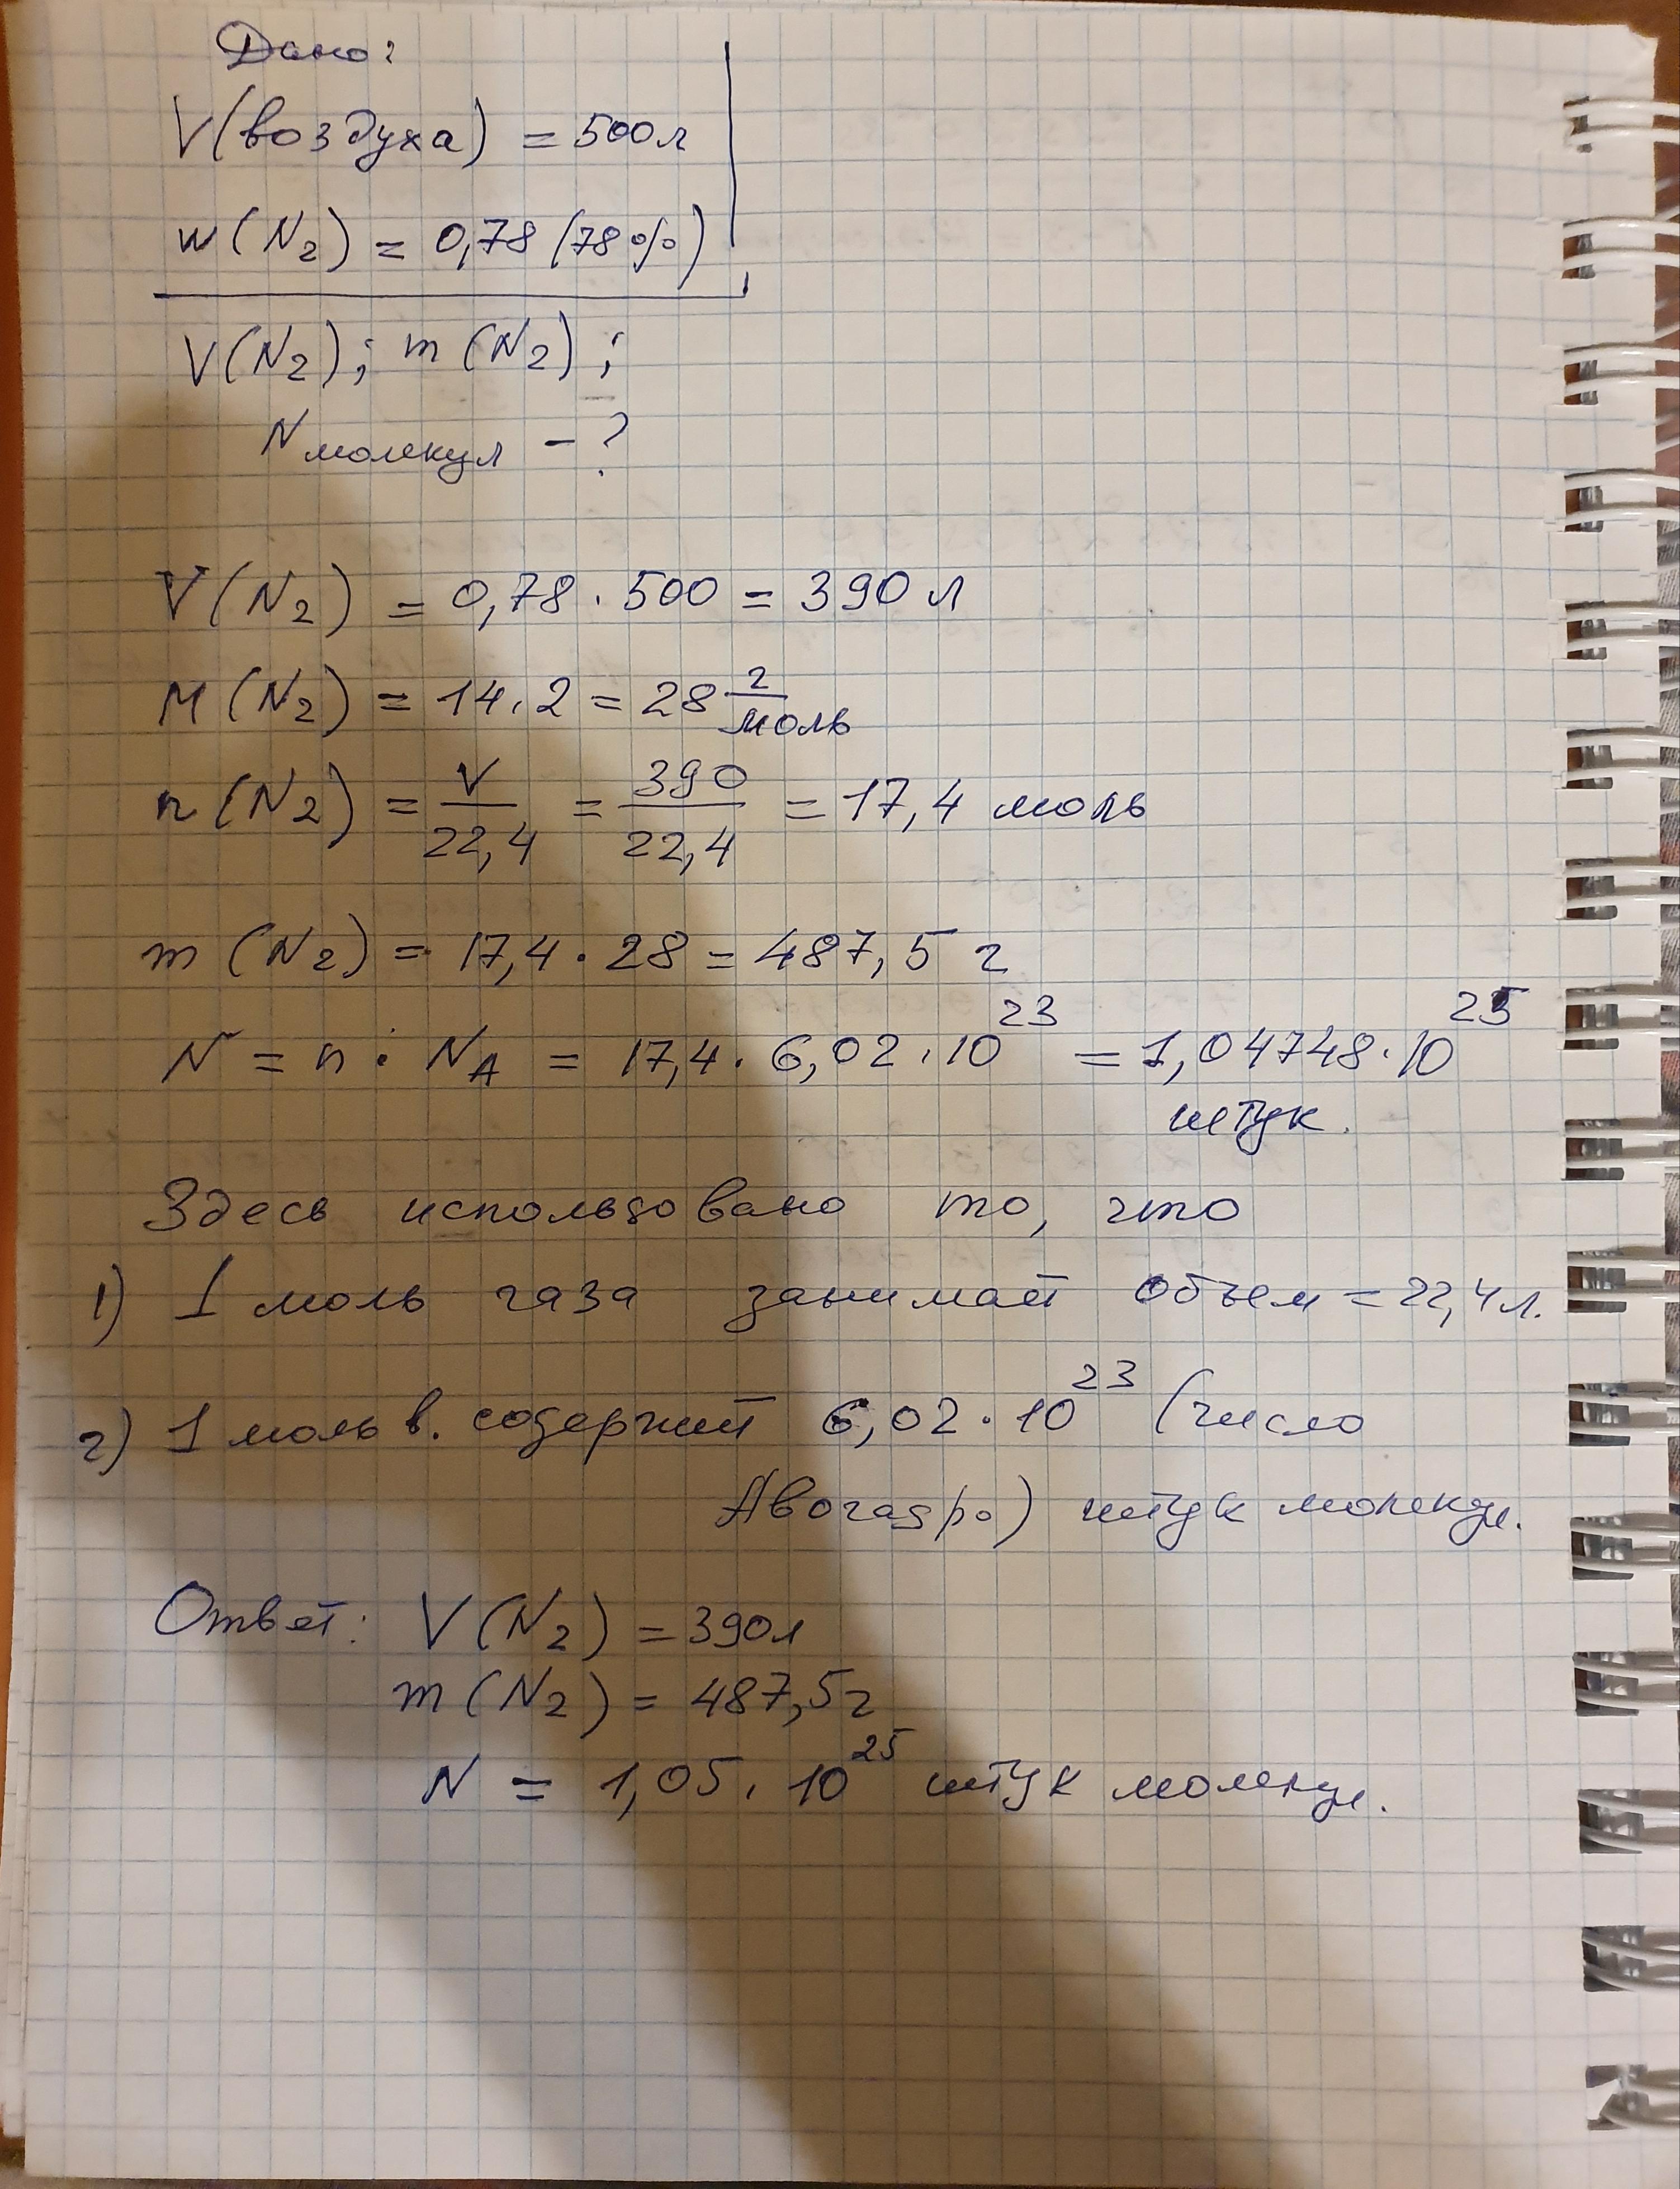 Дано:
V(воздуха) = 500л
w(N₂) = 0,78 (78%)
V(N₂); m(N₂);
N молекул - ?
V(N₂) = 0,78 · 500 = 390 л
M(N₂) = 14 · 2 = 28 г/моль
n(N₂) = V/22,4 = 390/22,4 = 17,4 моль
m(N₂) = 17,4 · 28 = 487,5 г
N = n · N_A = 17,4 · 6,02 · 10²³ = 1,04748 · 10²⁵
штук.
Здесь использовано то, что
1) 1 моль газа занимает объем = 22,4л.
2) 1 моль в. содержит 6,02 · 10²³ (число
Авогадро) штук молекул.
Ответ: V(N₂) = 390л
m(N₂) = 487,5г
N = 1,05 · 10²⁵ штук молекул.